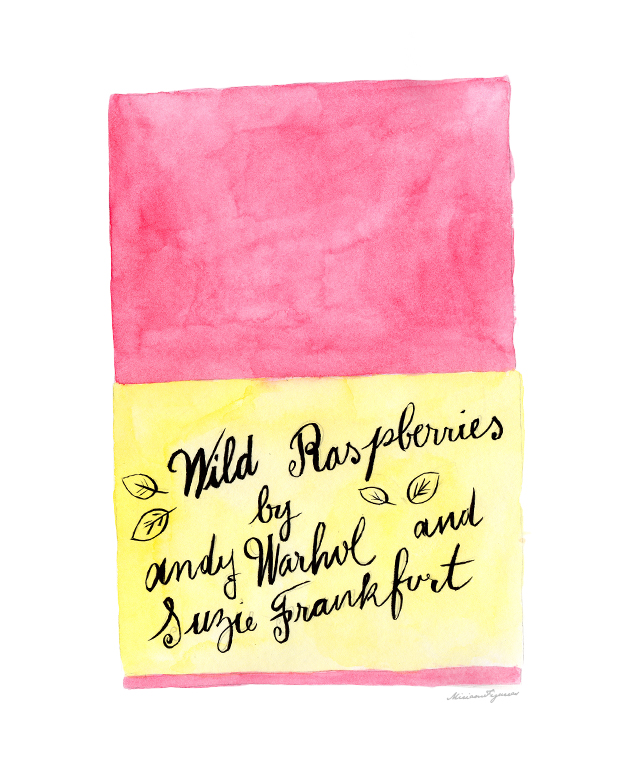 Wild Raspberries
by
andy Warhol and
Suzie Frankfurt